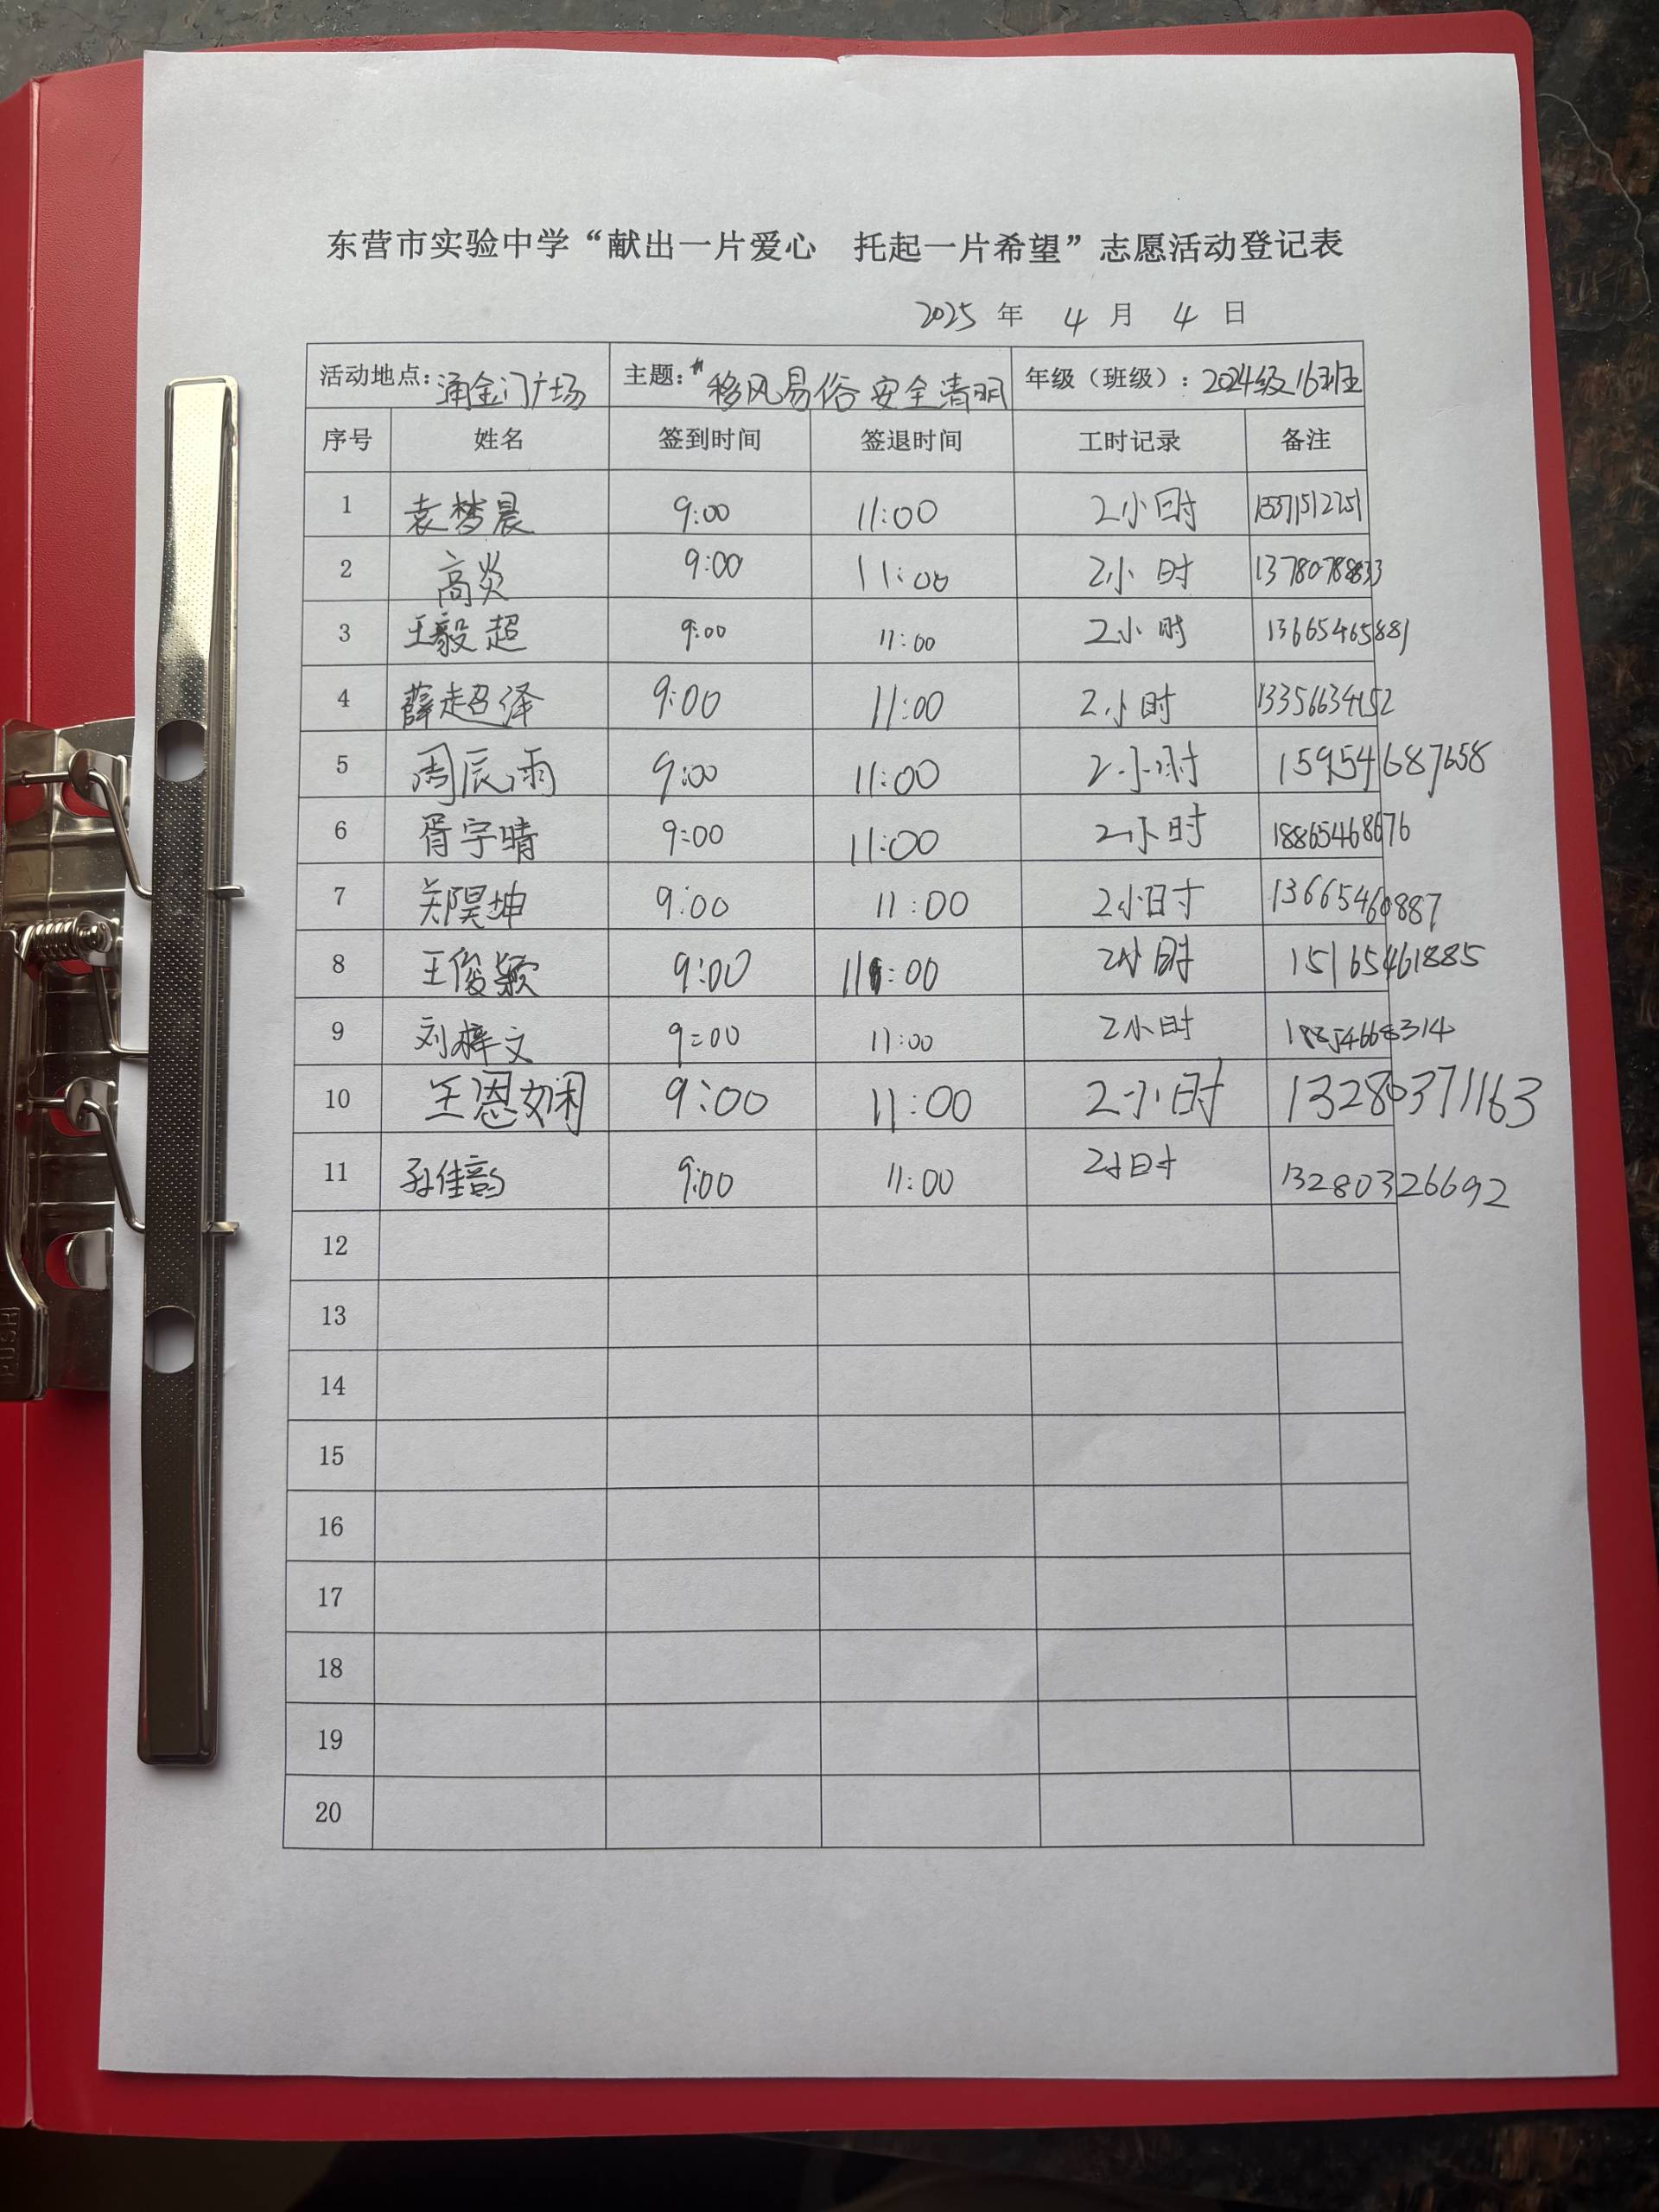 东营市实验中学“献出一片爱心 托起一片希望”志愿活动登记表
2025 年 4 月 4 日
活动地点：涌金门广场 主题：“移风易俗 安全清明 年级（班级）：2024级16班
序号 姓名 签到时间 签退时间 工时记录 备注
1 袁梦晨 9:00 11:00 2小时
2 高炎 9:00 11:00 2小时 13780788833
3 王毅超 9:00 11:00 2小时 13665465881
4 薛超泽 9:00 11:00 2小时 13356634152
5 周辰雨 9:00 11:00 2小时 15954687658
6 胥宇晴 9:00 11:00 2小时 18865468676
7 郑昊坤 9:00 11:00 2小时 13665460887
8 王俊颖 9:00 11:00 2小时 15165461885
9 刘梓文 9:00 11:00 2小时
10 王恩娴 9:00 11:00 2小时 13280371163
11 孙佳韵 9:00 11:00 2小时 13280326692
12
13
14
15
16
17
18
19
20
PUSH